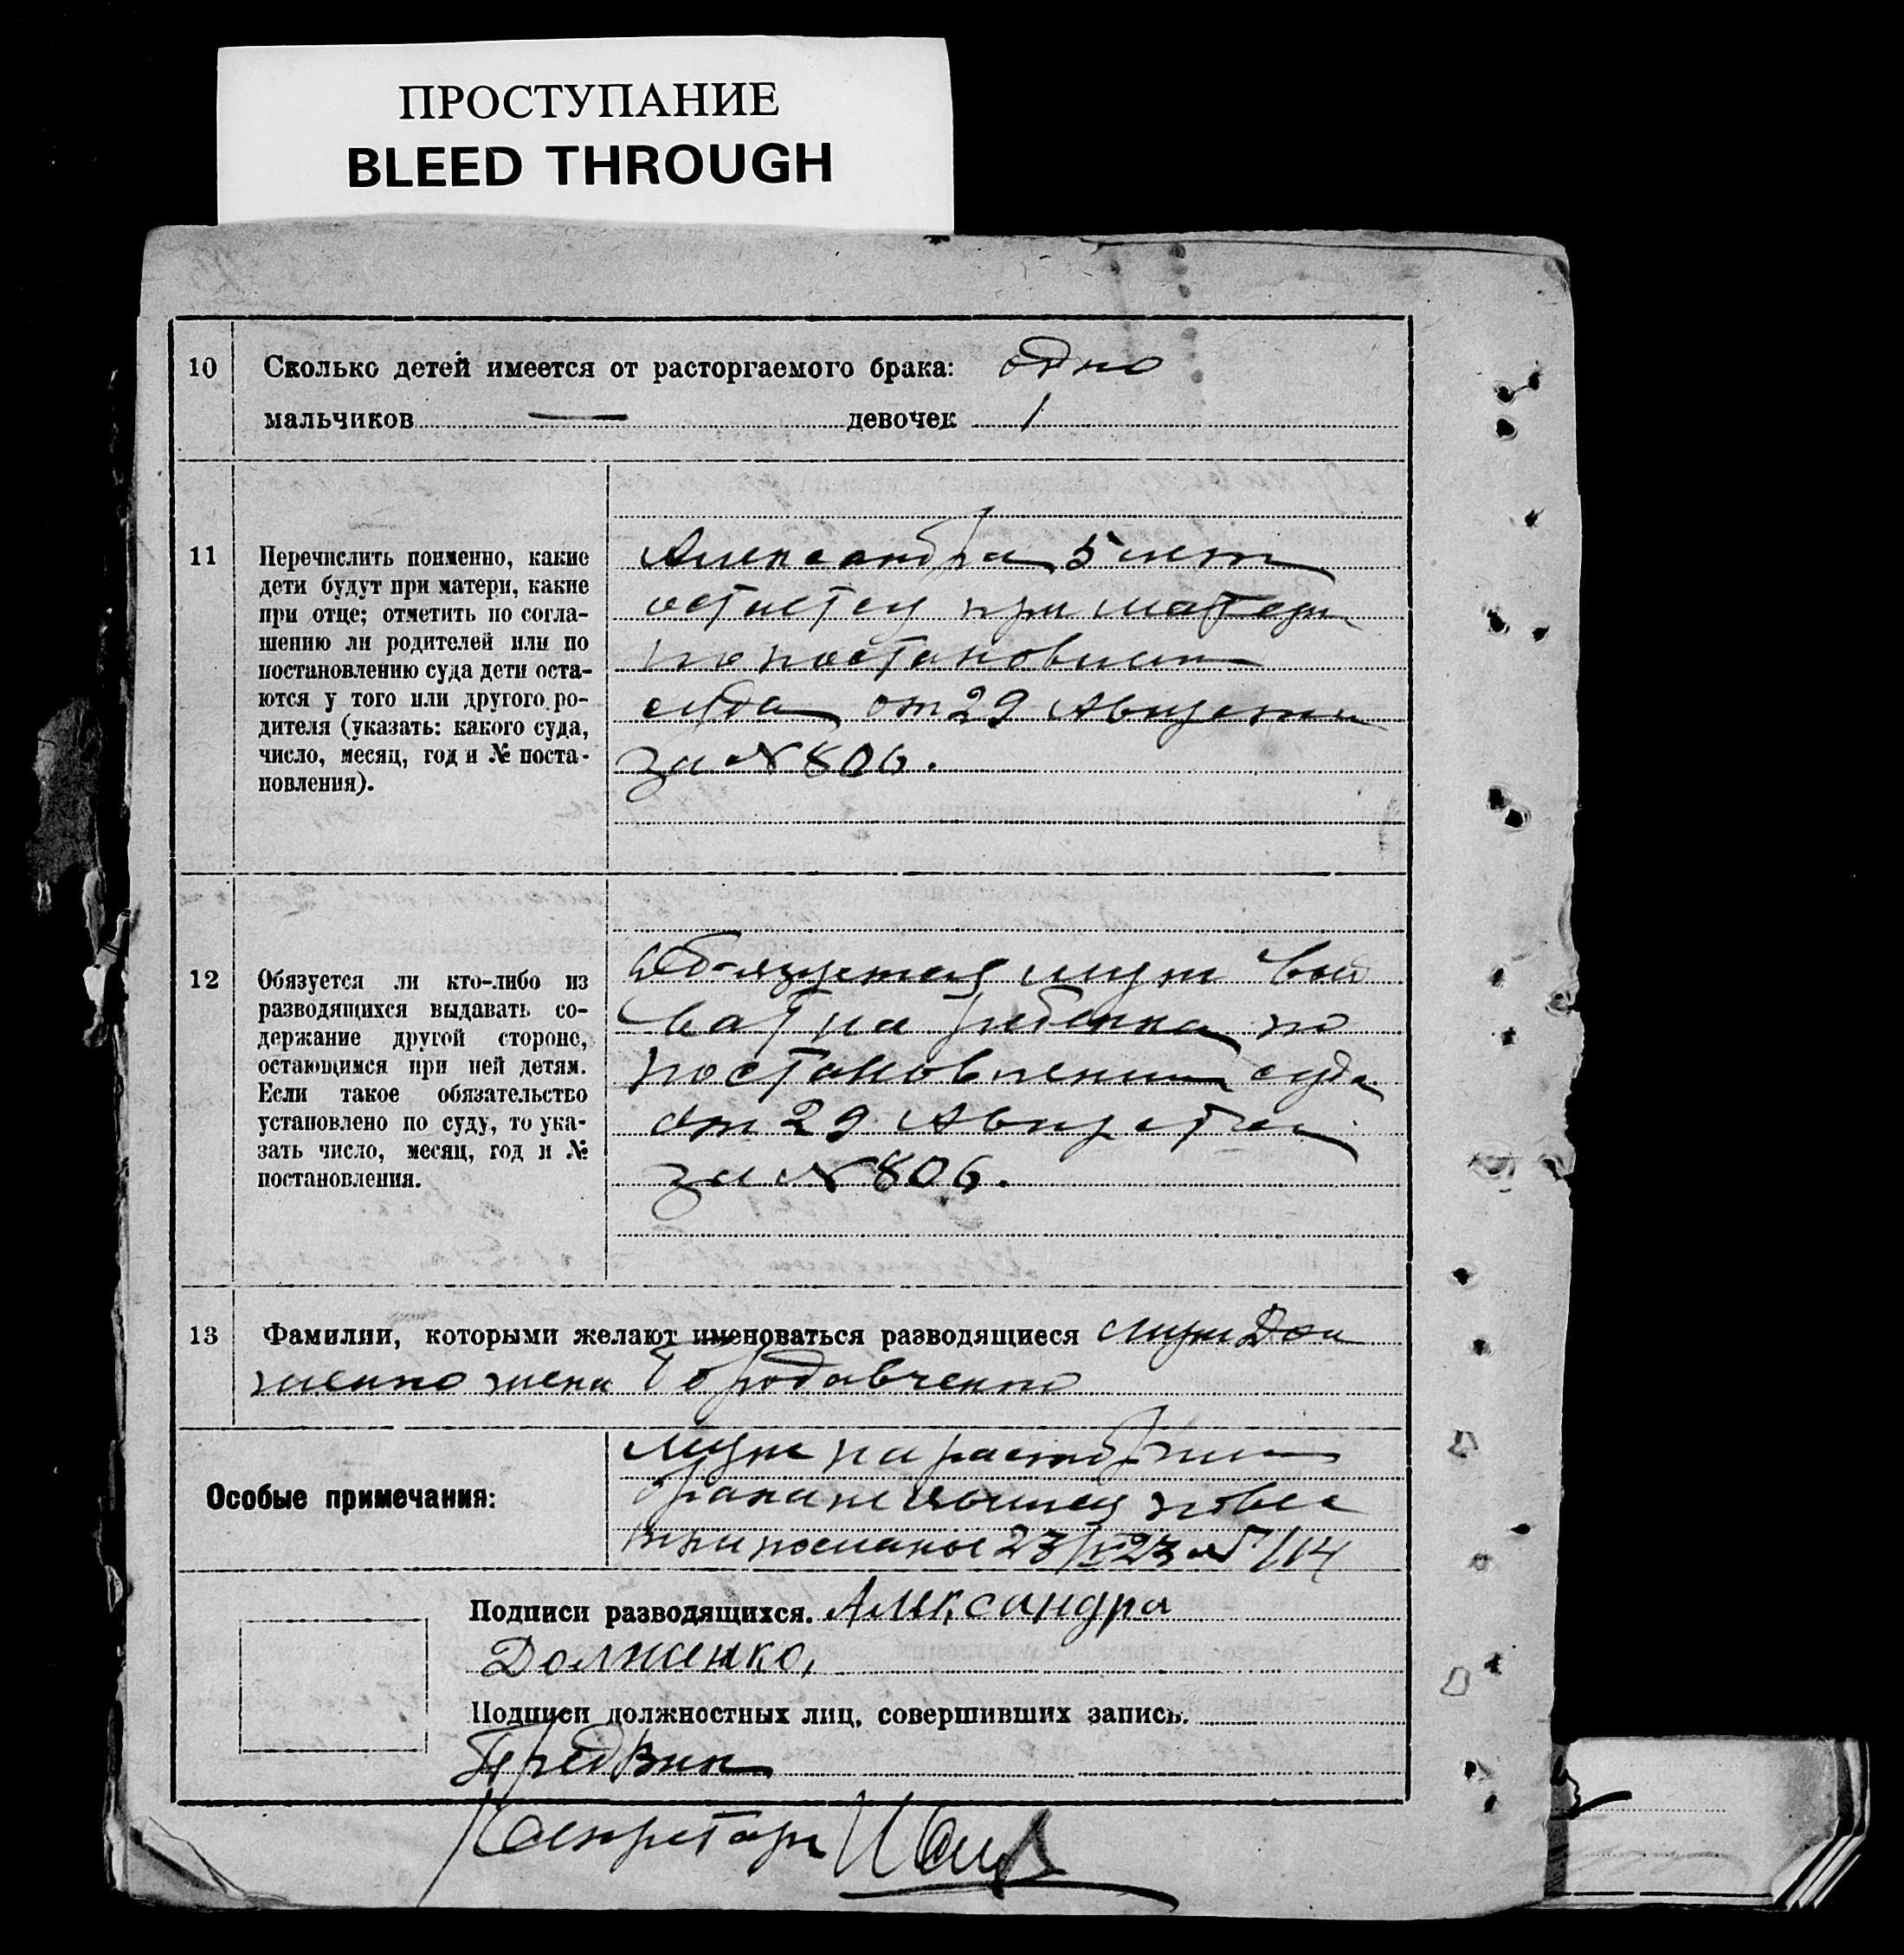 ПРОСТУПАНИЕ
BLEED THROUGH
10 Сколько детей имеется от расторгаемого брака: одно
мальчиков — девочек 1
11 Перечислить поименно, какие
дети будут при матери, какие
при отце; отметить по согла-
шению ли родителей или по
постановлению суда дети оста-
ются у того или другого ро-
дителя (указать: какого суда,
число, месяц, год и № поста-
новления).
Александра 5 лет
остается при матери
по постановлен
суда от 29 Августа
за № 806.
12 Обязуется ли кто-либо из
разводящихся выдавать со-
держание другой стороне,
остающимся при ней детям.
Если такое обязательство
установлено по суду, то ука-
зать число, месяц, год и №
постановления.
Обязуется муж
на ребенка по
постановлению суда
от 29 Августа
за № 806.
13 Фамилии, которыми желают именоваться разводящиеся муж Дол
женко жена Бородавченко
Особые примечания:
муж на расторжен
брака не явился
23/IV 23 № 7/114
Подписи разводящихся. Александра
Долженко,
Подписи должностных лиц, совершивших запись.
ПредВик
Секретарь